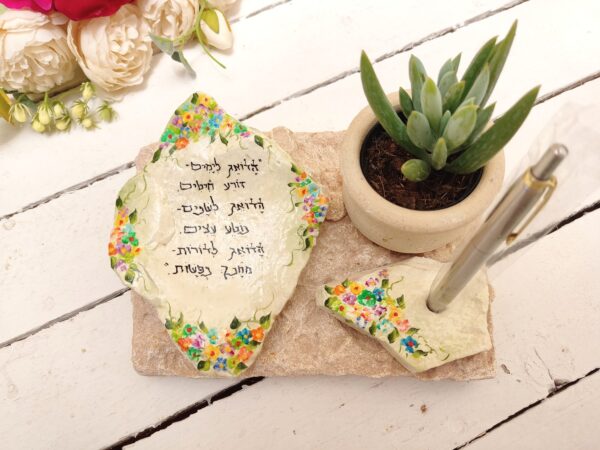 "הַדּוֹאֵג לְיָמִים-
זוֹרֵעַ חִיטִּים.
הַדּוֹאֵג לְשָׁנִים-
נוֹטֵעַ עֵצִים.
הַדּוֹאֵג לְדוֹרוֹת-
מְחַנֵּךְ נְפָשׁוֹת."